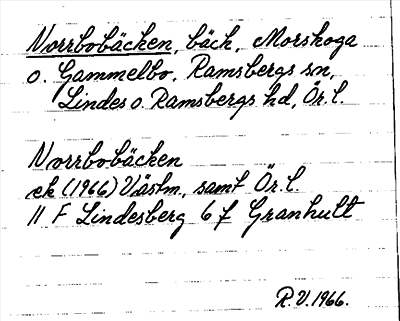 Norrbobäcken, bäck, Morskoga
o. Gammelbo, Ramsbergs sn,
Lindes o. Ramsbergs hd, Ör. l.
Norrbobäcken
ek (1966) Västm, samt Ör. l.
11 F Lindesberg 6 f Granhult
R.V. 1966.